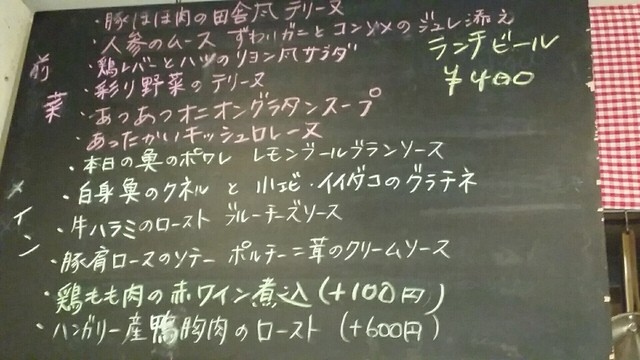 前菜
・豚ほほ肉の田舎風テリーヌ
・人参のムース ずわいガニとコンソメのジュレ添え
・鶏レバーとハツのリヨン風サラダ
・彩り野菜のテリーヌ
・あつあつオニオングラタンスープ
・あったかいキッシュロレーヌ
メイン
・本日の魚のポワレ レモンブールブランソース
・白身魚のクネルと小エビ・イイダコのグラチネ
・牛ハラミのロースト ブルーチーズソース
・豚肩ロースのソテー ポルチーニ茸のクリームソース
・鶏もも肉の赤ワイン煮込(+100円)
・ハンガリー産鴨胸肉のロースト(+600円)
ランチビール
¥400